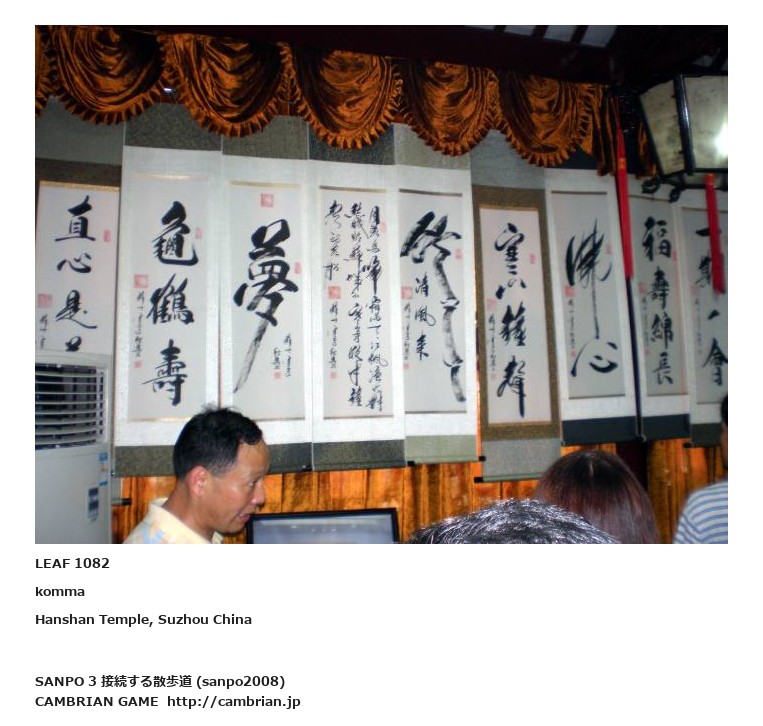 直心是
龜鶴壽
夢
月落烏啼霜滿天江楓漁火對
愁眠姑蘇城外寒山寺夜半鐘
聲到客船
清風來
寒山鐘聲
心
福壽綿長
一期一會
LEAF 1082
komma
Hanshan Temple, Suzhou China
SANPO 3 接続する散歩道 (sanpo2008)
CAMBRIAN GAME http://cambrian.jp